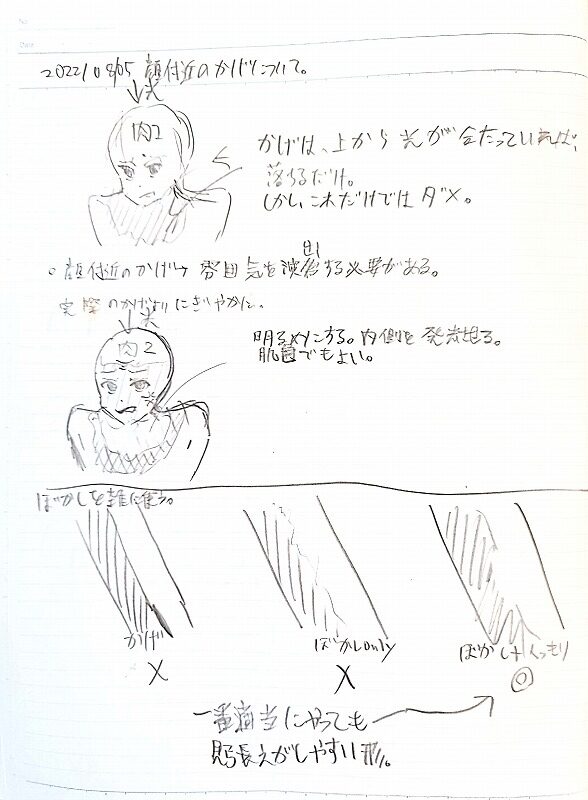 No.
Date
2022/08/05 顔付近のかげについて。
光
肉2
かげは、上から光が当たっていれば、
落ちるだけ。
しかし、これだけではダメ。
顔付近のかげ→雰囲気を演出する必要がある。
実際のかげよりにぎやかに。
光
肉2
明るめにする。内側を発光させる。
肌色でもよい。
ぼかしを雑に使う。
かげ
×
ぼかしonly
×
ぼかし+くっきり
◎
一番適当にやっても
見栄えがしやすい形。